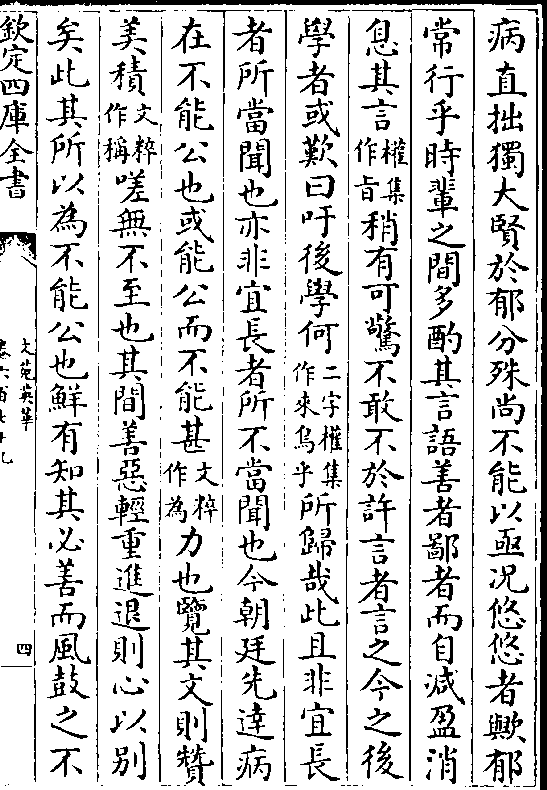 病直拙獨大賢於郁分殊尚不能以亟况悠悠者歟郁
常行乎時輩之間多酌其言語善者鄙者而自减盈消
息其言權集作旨稍有可驚不敢不於許言者言之今之後
學者或歎曰吁後學何二字權集作來烏乎所歸哉此且非宜長
者所當聞也亦非宜長者所不當聞也今朝廷先達病
在不能公也或能公而不能甚文粹作為力也覽其文則贊
美積文粹作稱嗟無不至也其間善惡輕重進退則心以别
矣此其所以為不能公也鮮有知其必善而風鼓之不
欽定四庫全書
文苑英華
卷六百七十九
四